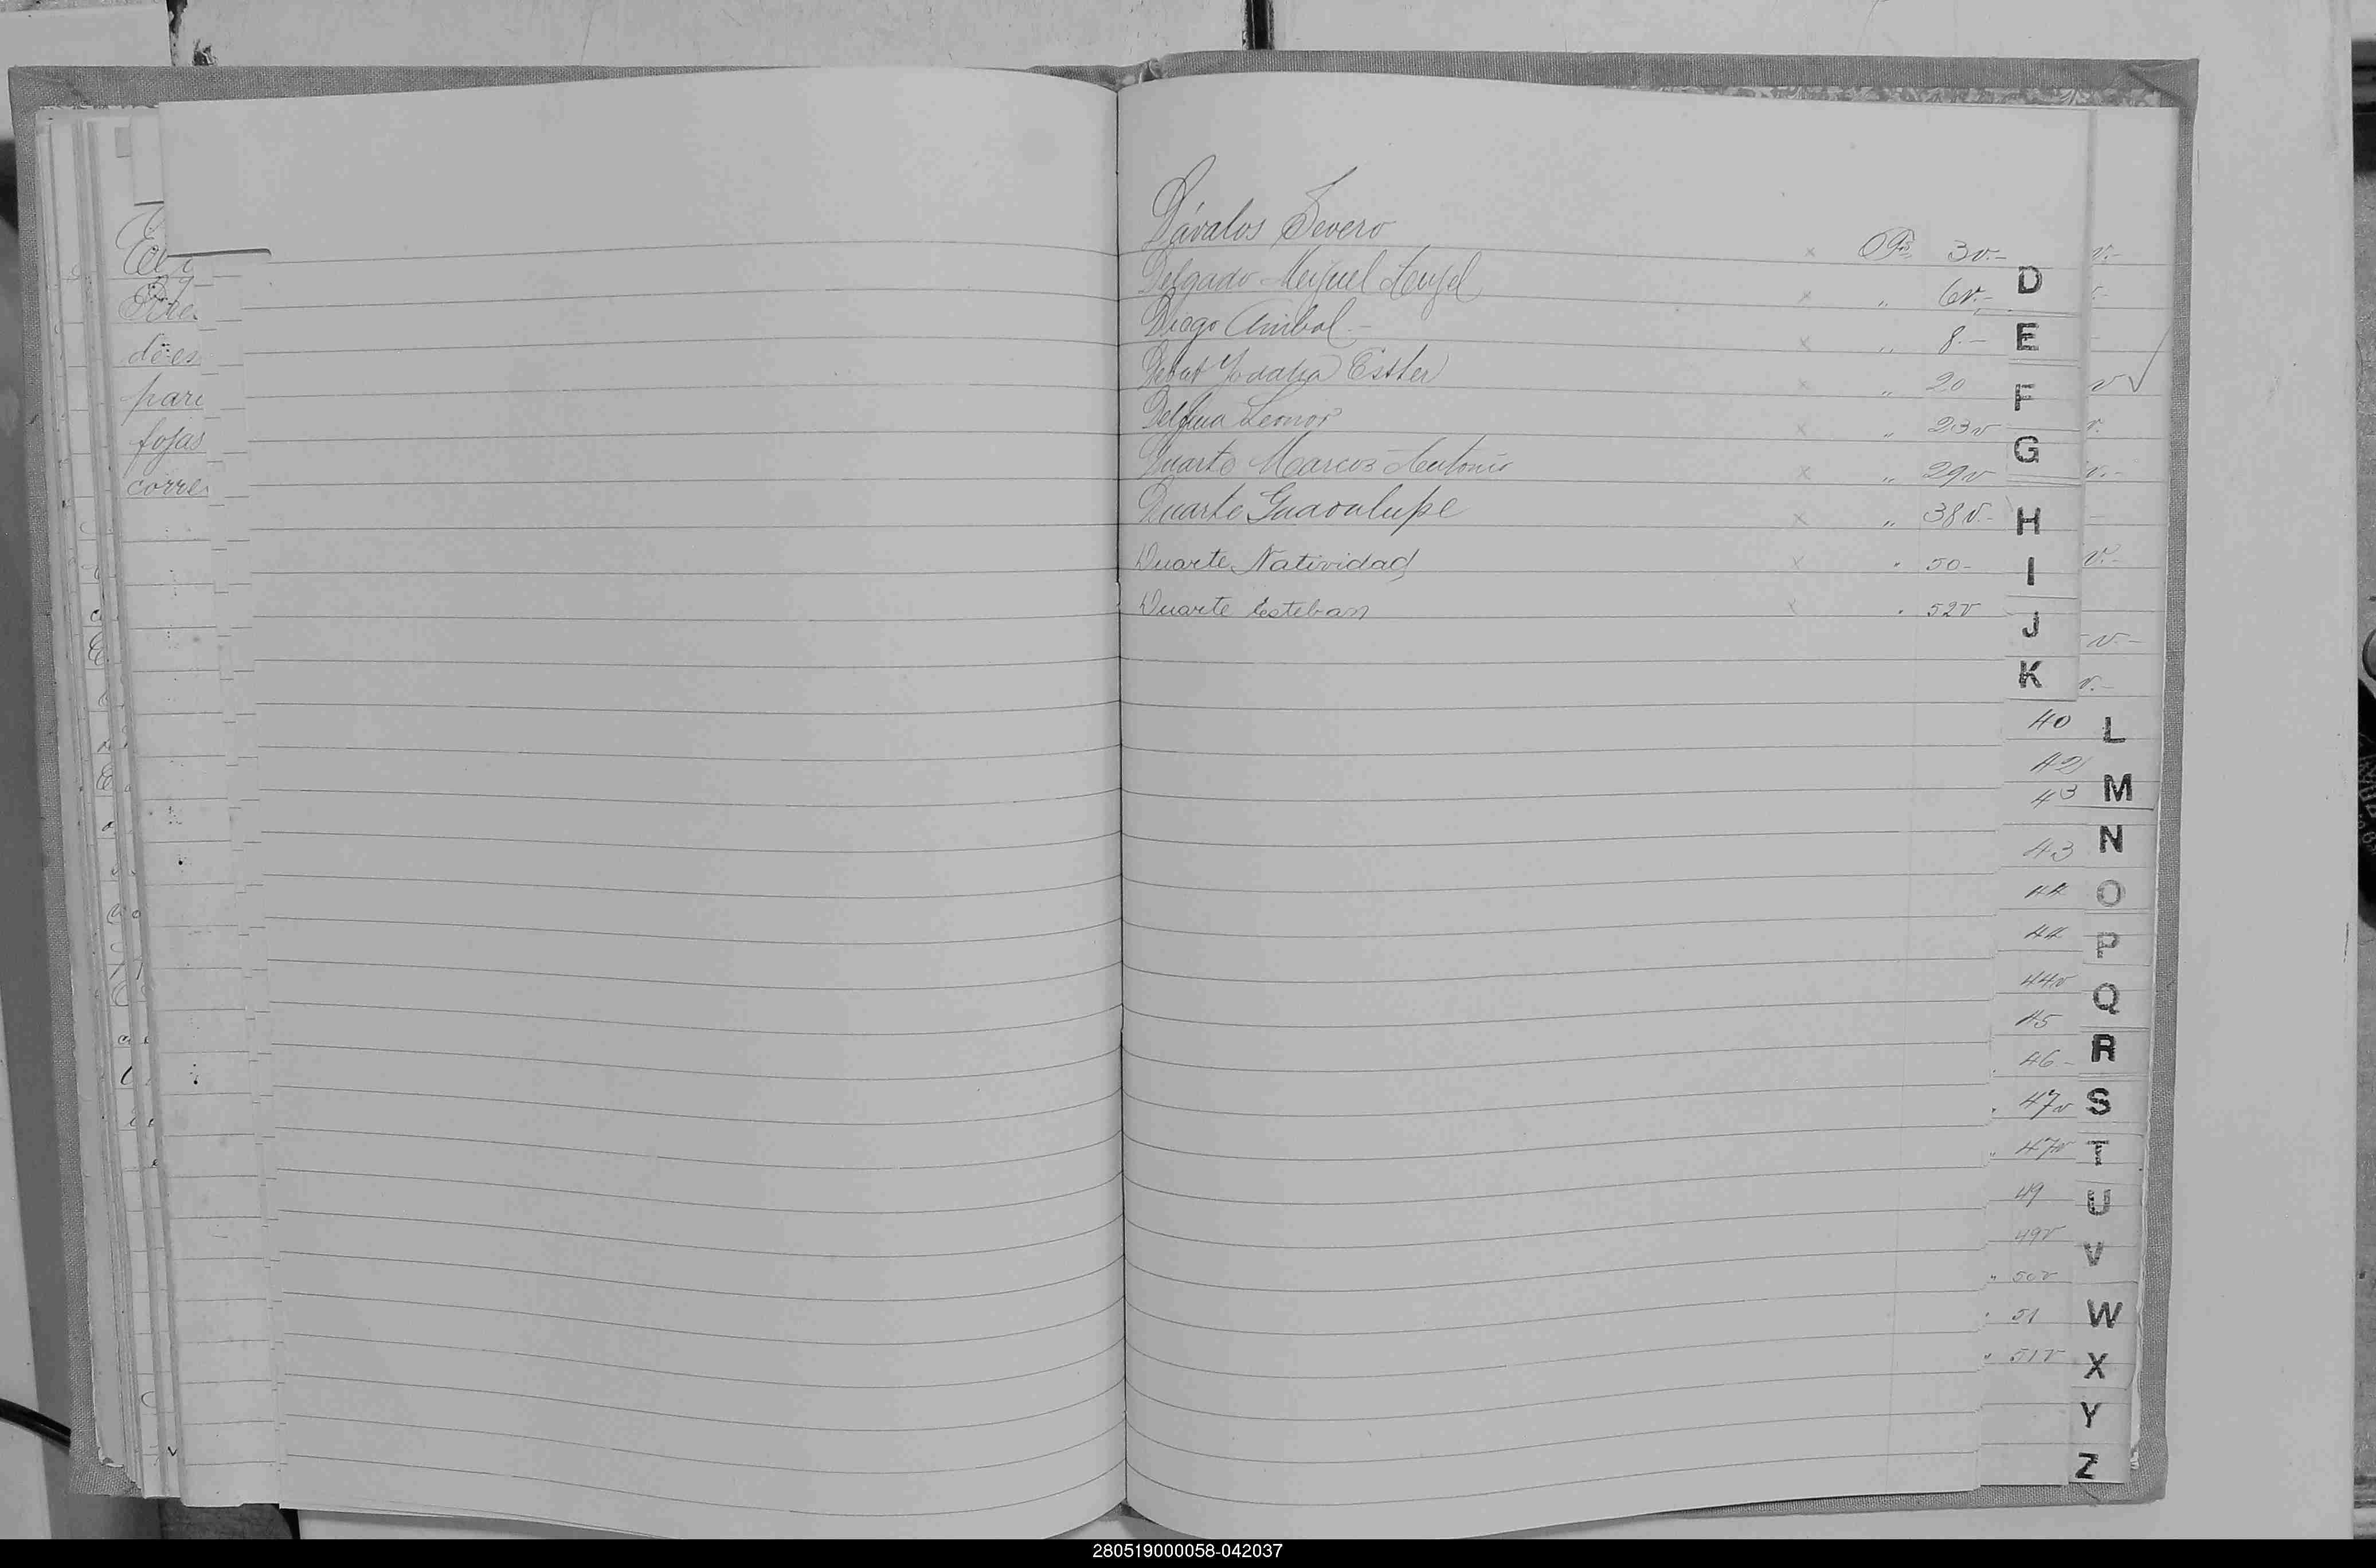 Dávalos Severo × Fs. 3v.-
Delgado Miguel Angel × " 6v.-
Diego Anibal.- × " 8.-
Esther × " 20
Delfina Leonor × " 23v
Duarte Marcos Antonio × " 29v
Duarte Guadalupe × " 38v.-
Duarte Natividad × " 50-
Duarte Esteban × " 52v
D
E
F
G
H
I
J
K
40 L
42
43 M
43 N
44 O
44 P
44v Q
45
46.- R
47v S
47v T
49 U
49v V
50v
51 W
51v X
Y
Z
de es
fojas
corre
280519000058-042037